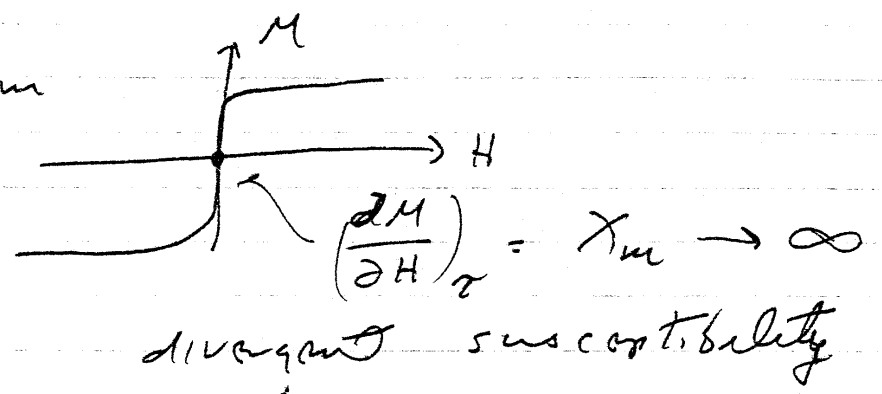 M
m
H
(∂M/∂H)_T = χ_m → ∞
divergent susceptibility